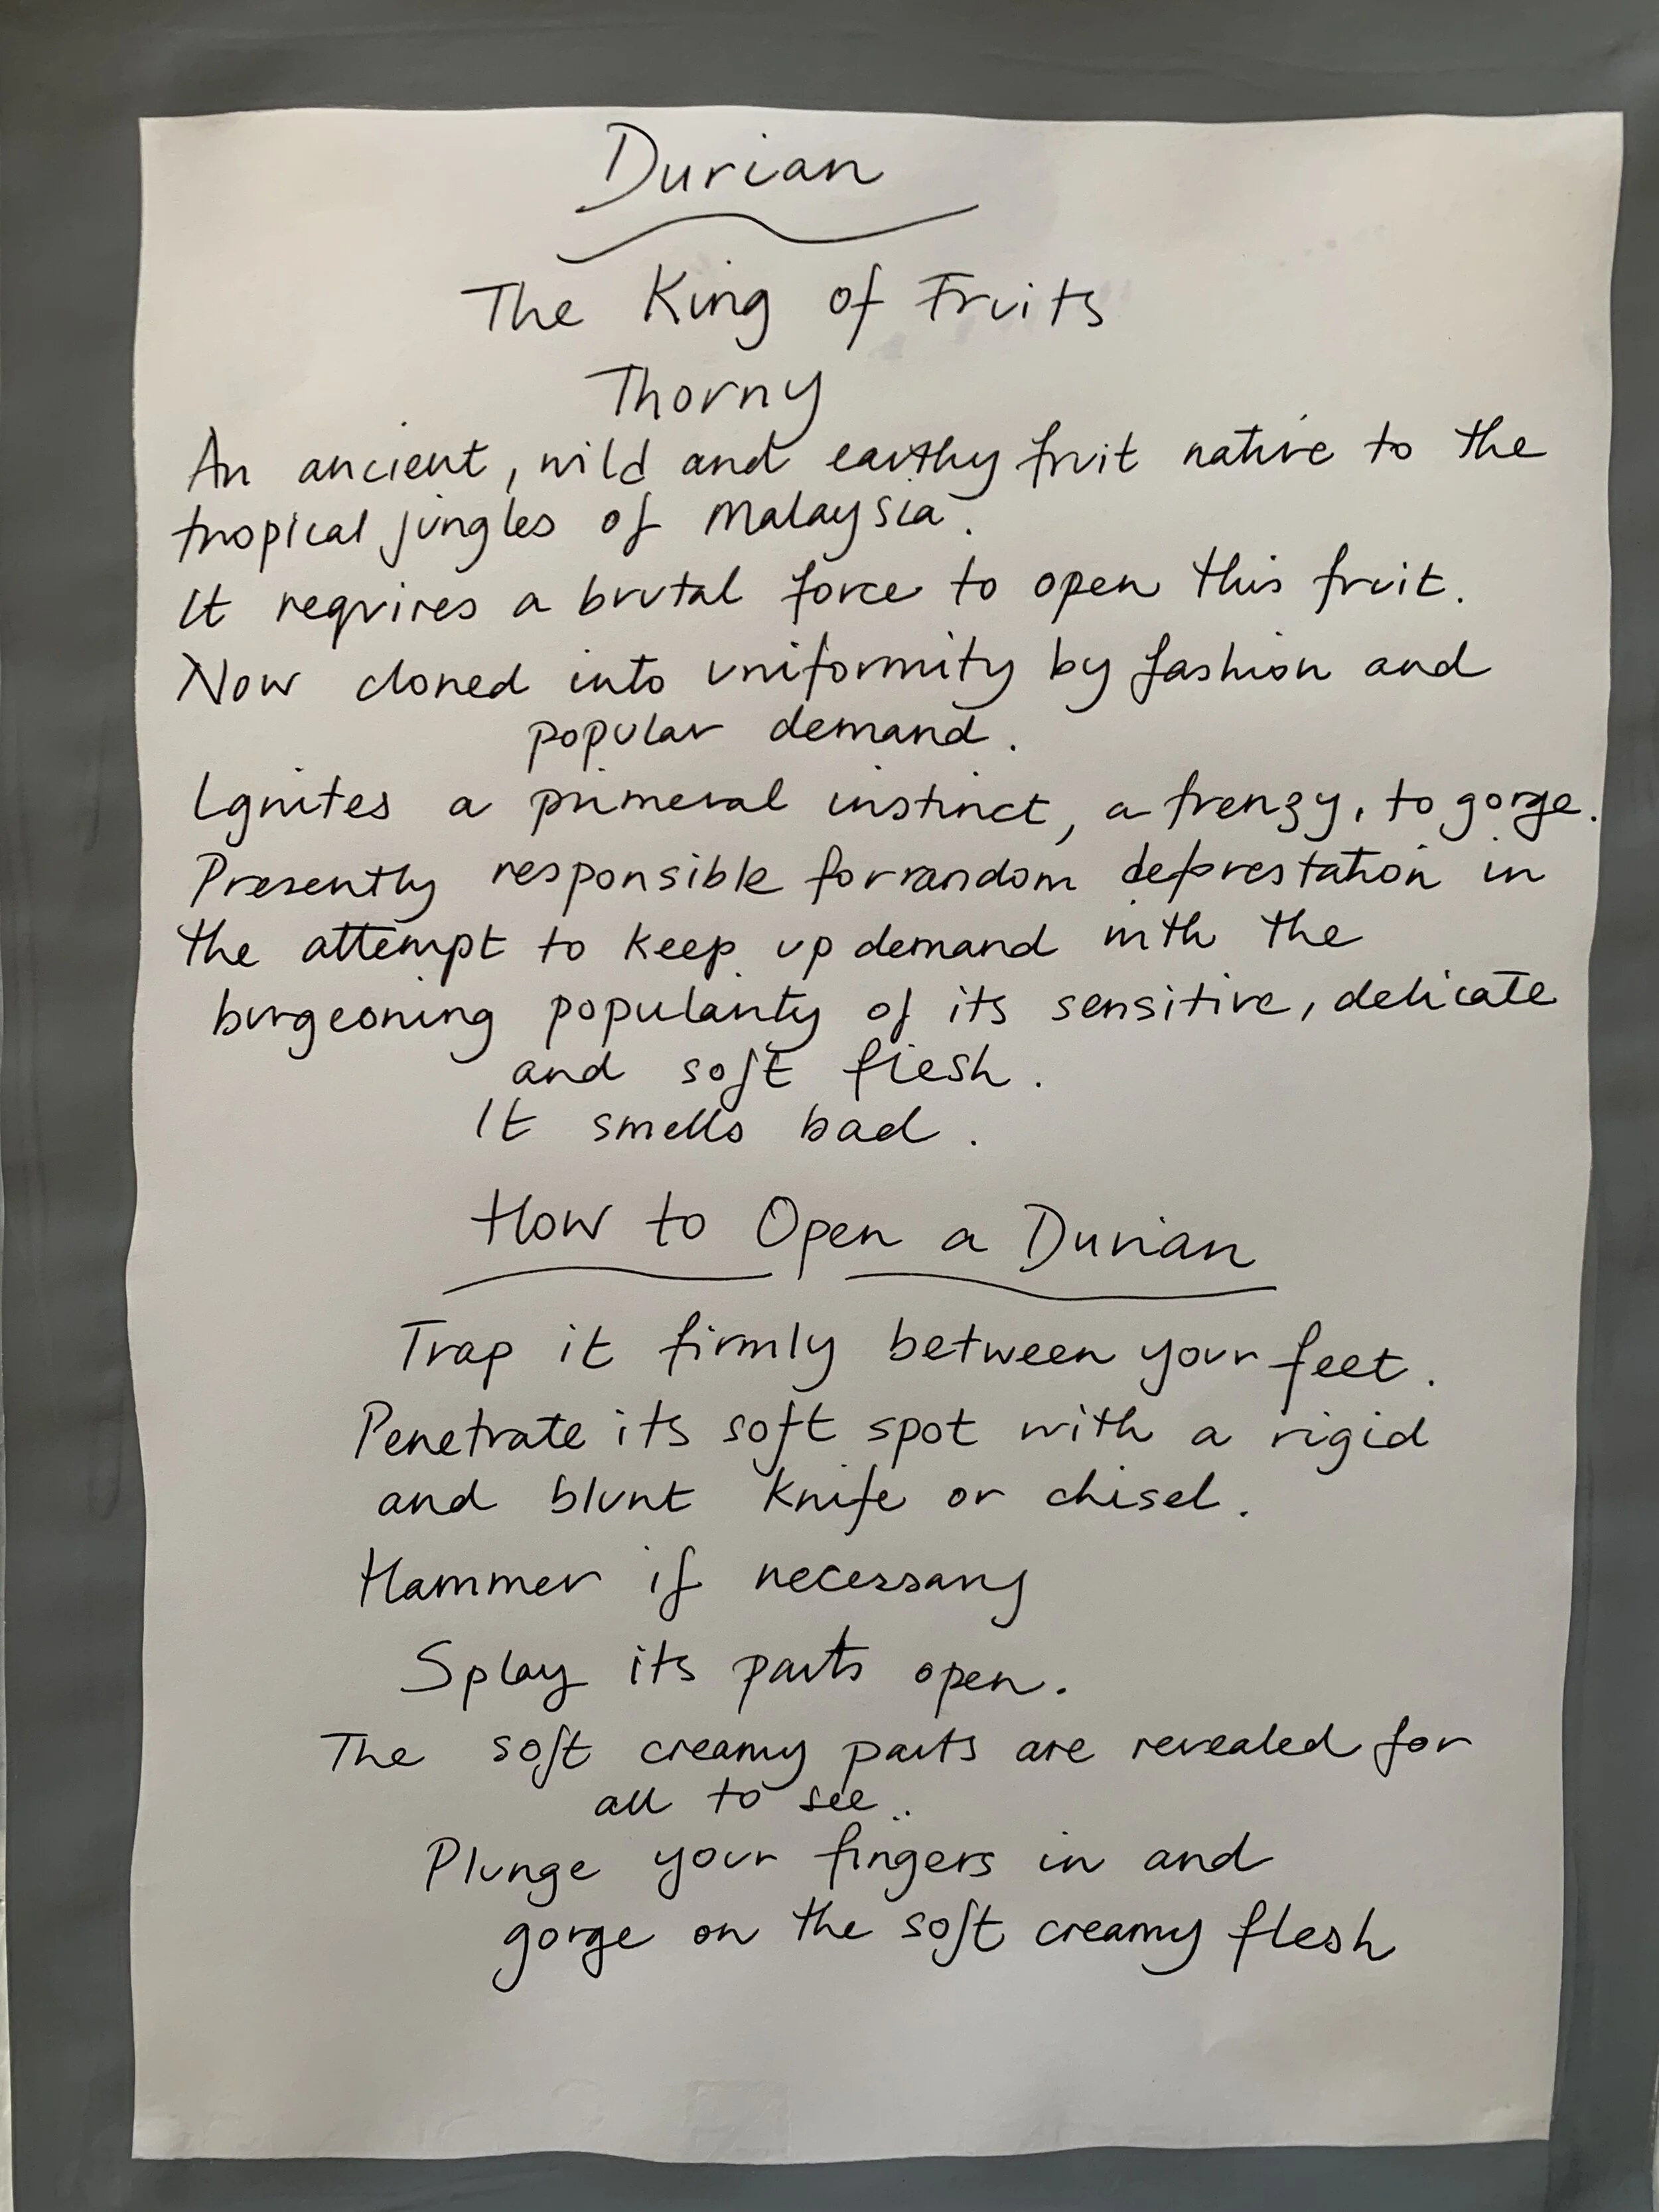 Durian
The King of Fruits
Thorny
An ancient, wild and earthy fruit native to the
tropical jungles of Malaysia.
It requires a brutal force to open this fruit.
Now cloned into uniformity by fashion and
popular demand.
Ignites a primeval instinct, a frenzy, to gorge.
Presently responsible for random deforestation in
the attempt to keep up demand with the
burgeoning popularity of its sensitive, delicate
and soft flesh.
It smells bad.
How to Open a Durian
Trap it firmly between your feet.
Penetrate its soft spot with a rigid
and blunt knife or chisel.
Hammer if necessary
Splay its parts open.
The soft creamy parts are revealed for
all to see..
Plunge your fingers in and
gorge on the soft creamy flesh